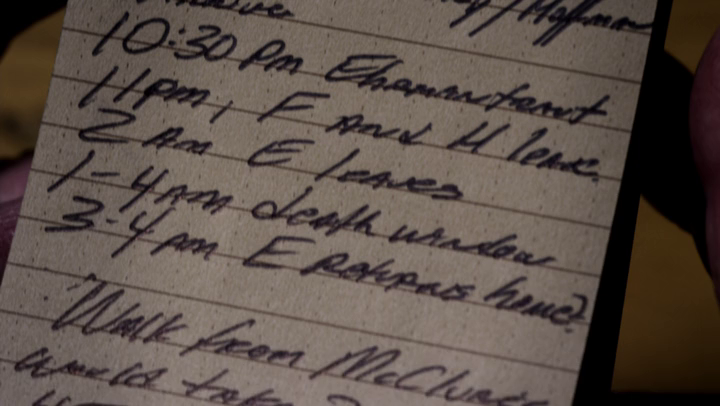 /Hoffman
10:30 Pm Ehomantraut
11pm, F And H leave.
2 Am E leaves
1-4AM death window
3-4 Am E returns home?
Walk from McClures
would take